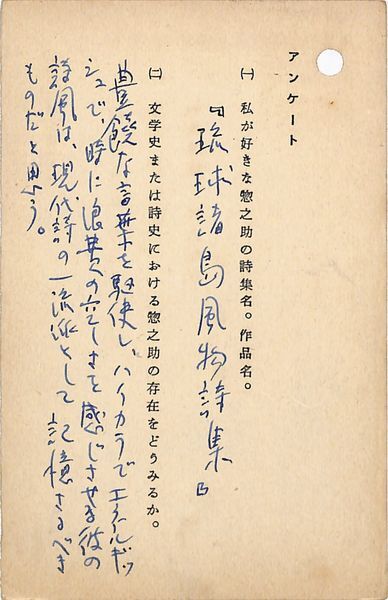 アンケート
㈠ 私が好きな惣之助の詩集名。作品名。
『琉球諸島風物詩集』
㈡ 文学史または詩史における惣之助の存在をどうみるか。
豊饒な言葉を駆使し、ハイカラでエネルギッ
シュで、時に浪費の空しさを感じさせる彼の
詩風は、現代詩の一流派として記憶さるべき
ものだと思う。